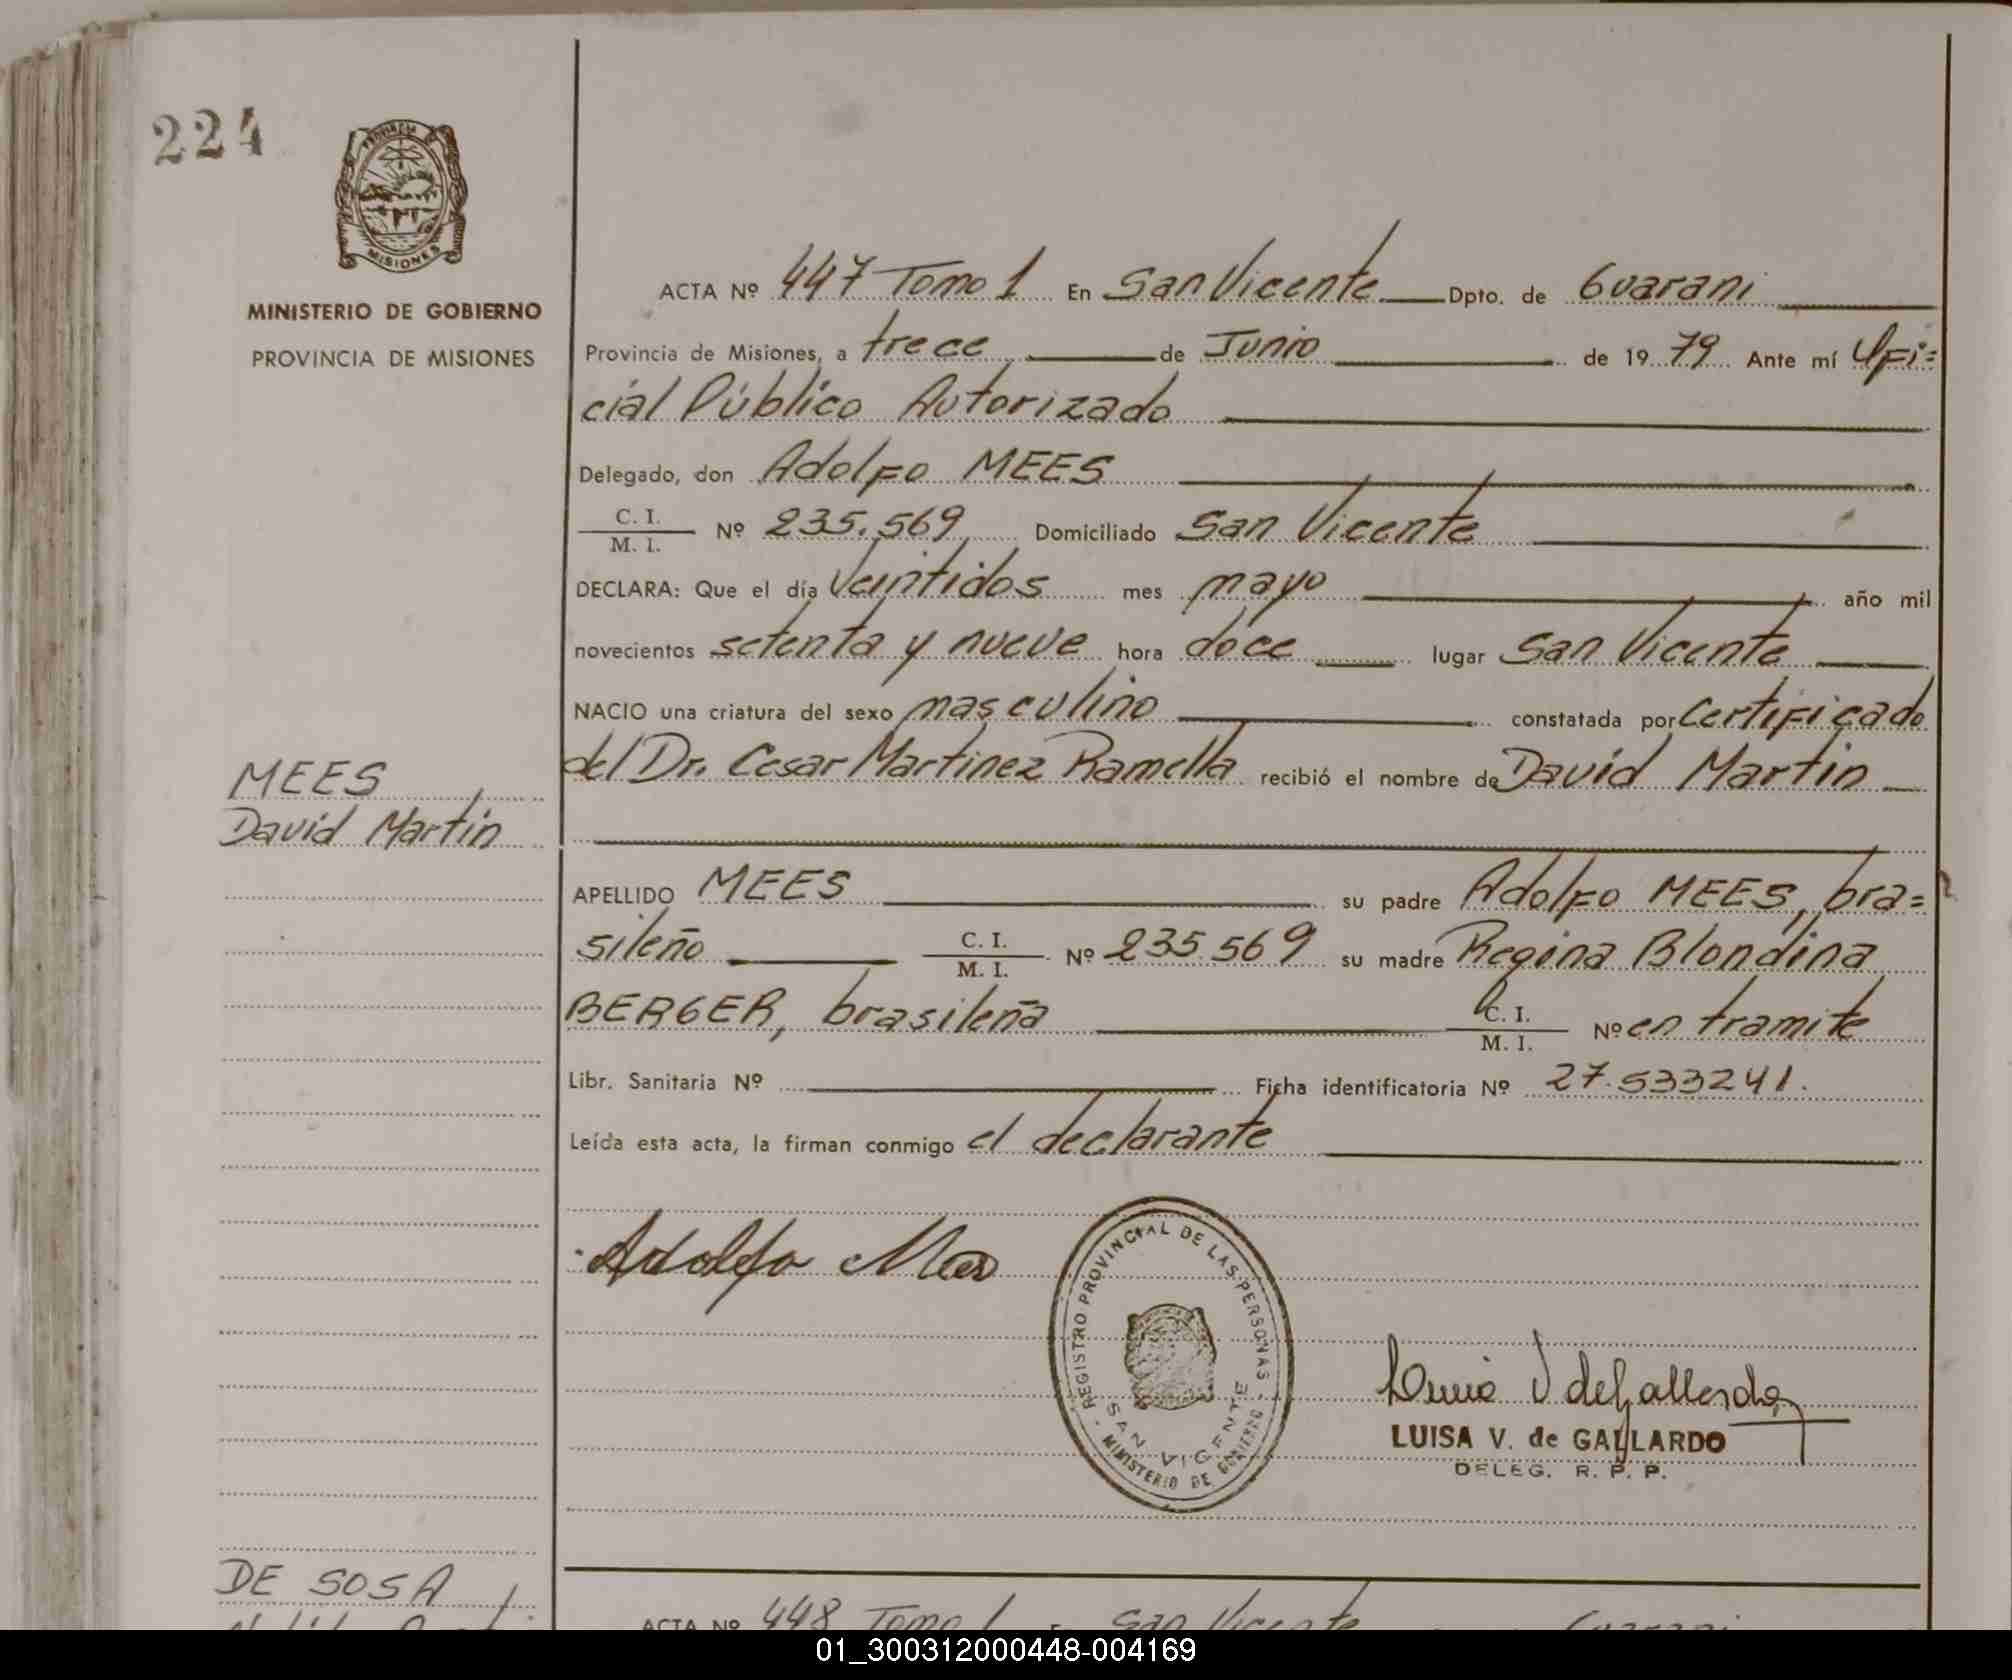 224
PROVINCIA
MISIONES
MINISTERIO DE GOBIERNO
PROVINCIA DE MISIONES
ACTA Nº 447 Tomo 1 En San Vicente Dpto. de Guarani
Provincia de Misiones, a trece de Junio de 1979 Ante mí Ofi=
cial Público Autorizado
Delegado, don Adolfo MEES
C. I.
M. I. Nº 235.569 Domiciliado San Vicente
DECLARA: Que el día Veintidos mes mayo año mil
novecientos setenta y nueve hora doce lugar San Vicente
NACIO una criatura del sexo masculino constatada por certificado
del Dr. Cesar Martinez Ramella recibió el nombre de David Martin
MEES
David Martin
APELLIDO MEES su padre Adolfo MEES, bra=
sileño C. I. M. I. Nº 235.569 su madre Regina Blondina
BERGER, brasileña C. I. M. I. Nº en tramite
Libr. Sanitaria Nº Ficha identificatoria Nº 27.533241.
Leída esta acta, la firman conmigo el declarante
Adolfo Mees
REGISTRO PROVINCIAL DE LAS PERSONAS
SAN VICENTE
MINISTERIO DE GOBIERNO
Luisa V de Gallardo
LUISA V. de GALLARDO
DELEG. R. P. P.
DE SOSA
ACTA Nº 448 Tomo 1 San Vicente Guarani
01_300312000448-004169